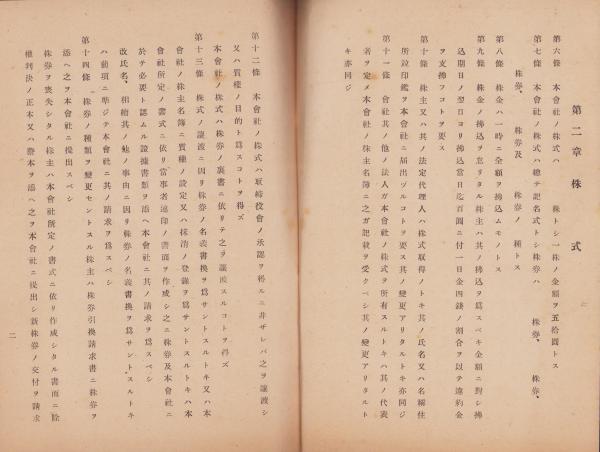 第二章 株式
第六條 本會社ノ株式ハ 株トシ一株ノ金額ヲ五拾圓トス
第七條 本會社ノ株式ハ總テ記名式トシ株券ハ 株券、 株券、
株券、 株券及 株券ノ 種トス
第八條 株金ハ一時ニ全額ヲ拂込ムモノトス
第九條 株金ノ拂込ヲ怠リタル株主ハ其ノ拂込ヲ爲スベキ金額ニ對シ拂
込期日ノ翌日ヨリ拂込當日迄百圓ニ付一日金四錢ノ割合ヲ以テ違約金
ヲ支拂フコトヲ要ス
第十條 株主又ハ其ノ法定代理人ハ株式取得ノトキ其ノ氏名又ハ名稱住
所竝印鑑ヲ本會社ニ届出ヅルコトヲ要ス其ノ變更アリタルトキ亦同ジ
第十一條 會社其ノ他ノ法人ガ本會社ノ株式ヲ所有スルトキハ其ノ代表
者ヲ定メ本會社ノ株主名簿ニ之ガ記載ヲ受クベシ其ノ變更アリタルト
キ亦同ジ
第十二條 本會社ノ株式ハ取締役會ノ承認ヲ得ルニ非ザレバ之ヲ讓渡シ
又ハ質權ノ目的ト爲スコトヲ得ズ
本會社ノ株式ハ株券ノ裏書ニ依リテ之ヲ讓渡スルコトヲ得ズ
第十三條 株式ノ讓渡ニ因リ株券ノ名義書換ヲ爲サントスルトキ又ハ本
會社ノ株主名簿ニ質權ノ設定又ハ抹消ノ登錄ヲ爲サントスルトキハ本
會社所定ノ書式ニ依リ當事者連印ノ書面ヲ作成シ之ニ株券及本會社ニ
於テ必要ト認ムル證據書類ヲ添ヘ本會社ニ其ノ請求ヲ爲スベシ
改氏名、相續其ノ他ノ事由ニ因リ株券ノ名義書換ヲ爲サントスルトキ
ハ前項ニ準ジテ本會社ニ其ノ請求ヲ爲スベシ
第十四條 株券ノ種類ヲ變更セントスル株主ハ株券引換請求書ニ株券ヲ
添ヘ之ヲ本會社ニ提出スベシ
株券ヲ喪失シタル株主ハ本會社所定ノ書式ニ依リ作成シタル書面ニ除
權判決ノ正本又ハ謄本ヲ添ヘ之ヲ本會社ニ提出シ新株券ノ交付ヲ請求
二